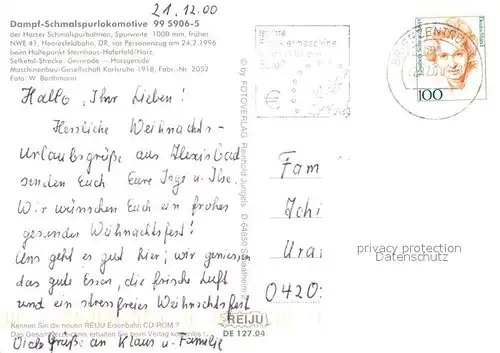 21.12.00
Dampf-Schmalspurlokomotive 99 5906-5
der Harzer Schmalspurbahnen, Spurweite 1000 mm, früher
NWE 41, Heeresfeldbahn, DR, vor Personenzug am 24.2.1996
beim Haltepunkt Sternhaus-Haferfeld/Harz.
Selketal-Strecke: Gernrode – Harzgerode
Maschinenbau-Gesellschaft Karlsruhe 1918, Fabr.-Nr. 2052
Foto: W. Berthmann
Hallo, Ihr Lieben!
Herzliche Weihnachts-
urlaubsgrüße aus Alexisbad
senden Euch Eure Inge u. Ilse.
Wir wünschen Euch ein frohes
gesundes Weihnachtsfest!
Uns geht es gut hier; wir geniessen
das gute Essen, die frische Luft
und ein stressfreies Weihnachtsfest
Viele Grüße an Klaus u. Familie
Kennen Sie die neuen REIJU Eisenbahn CD-ROM ?
Das Gesamtverzeichnis erhalten Sie beim Verlag kostenlos !
© by FOTOVERLAG Reinhold Jungels D-64850 Schaafheim
REIJU
DE 127.04
BRIEFZENTRUM
Deutschland
100
Fam
Ichi
Ura
0420
privacy protection
Datenschutz